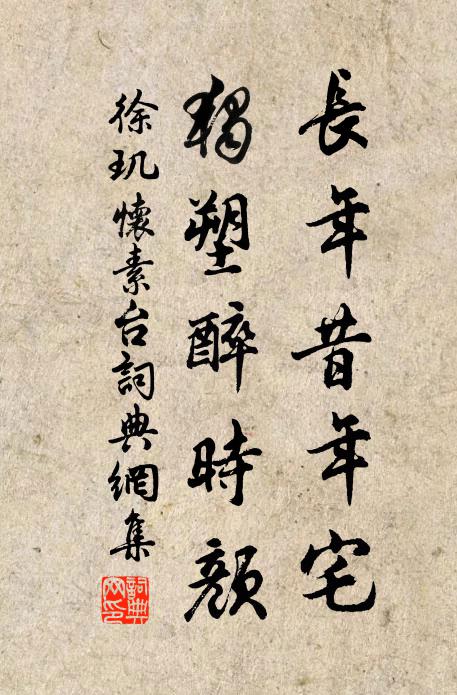 長年昔年宅
獨塑醉時顏
徐玑懷素台詞典網集
詞典網印